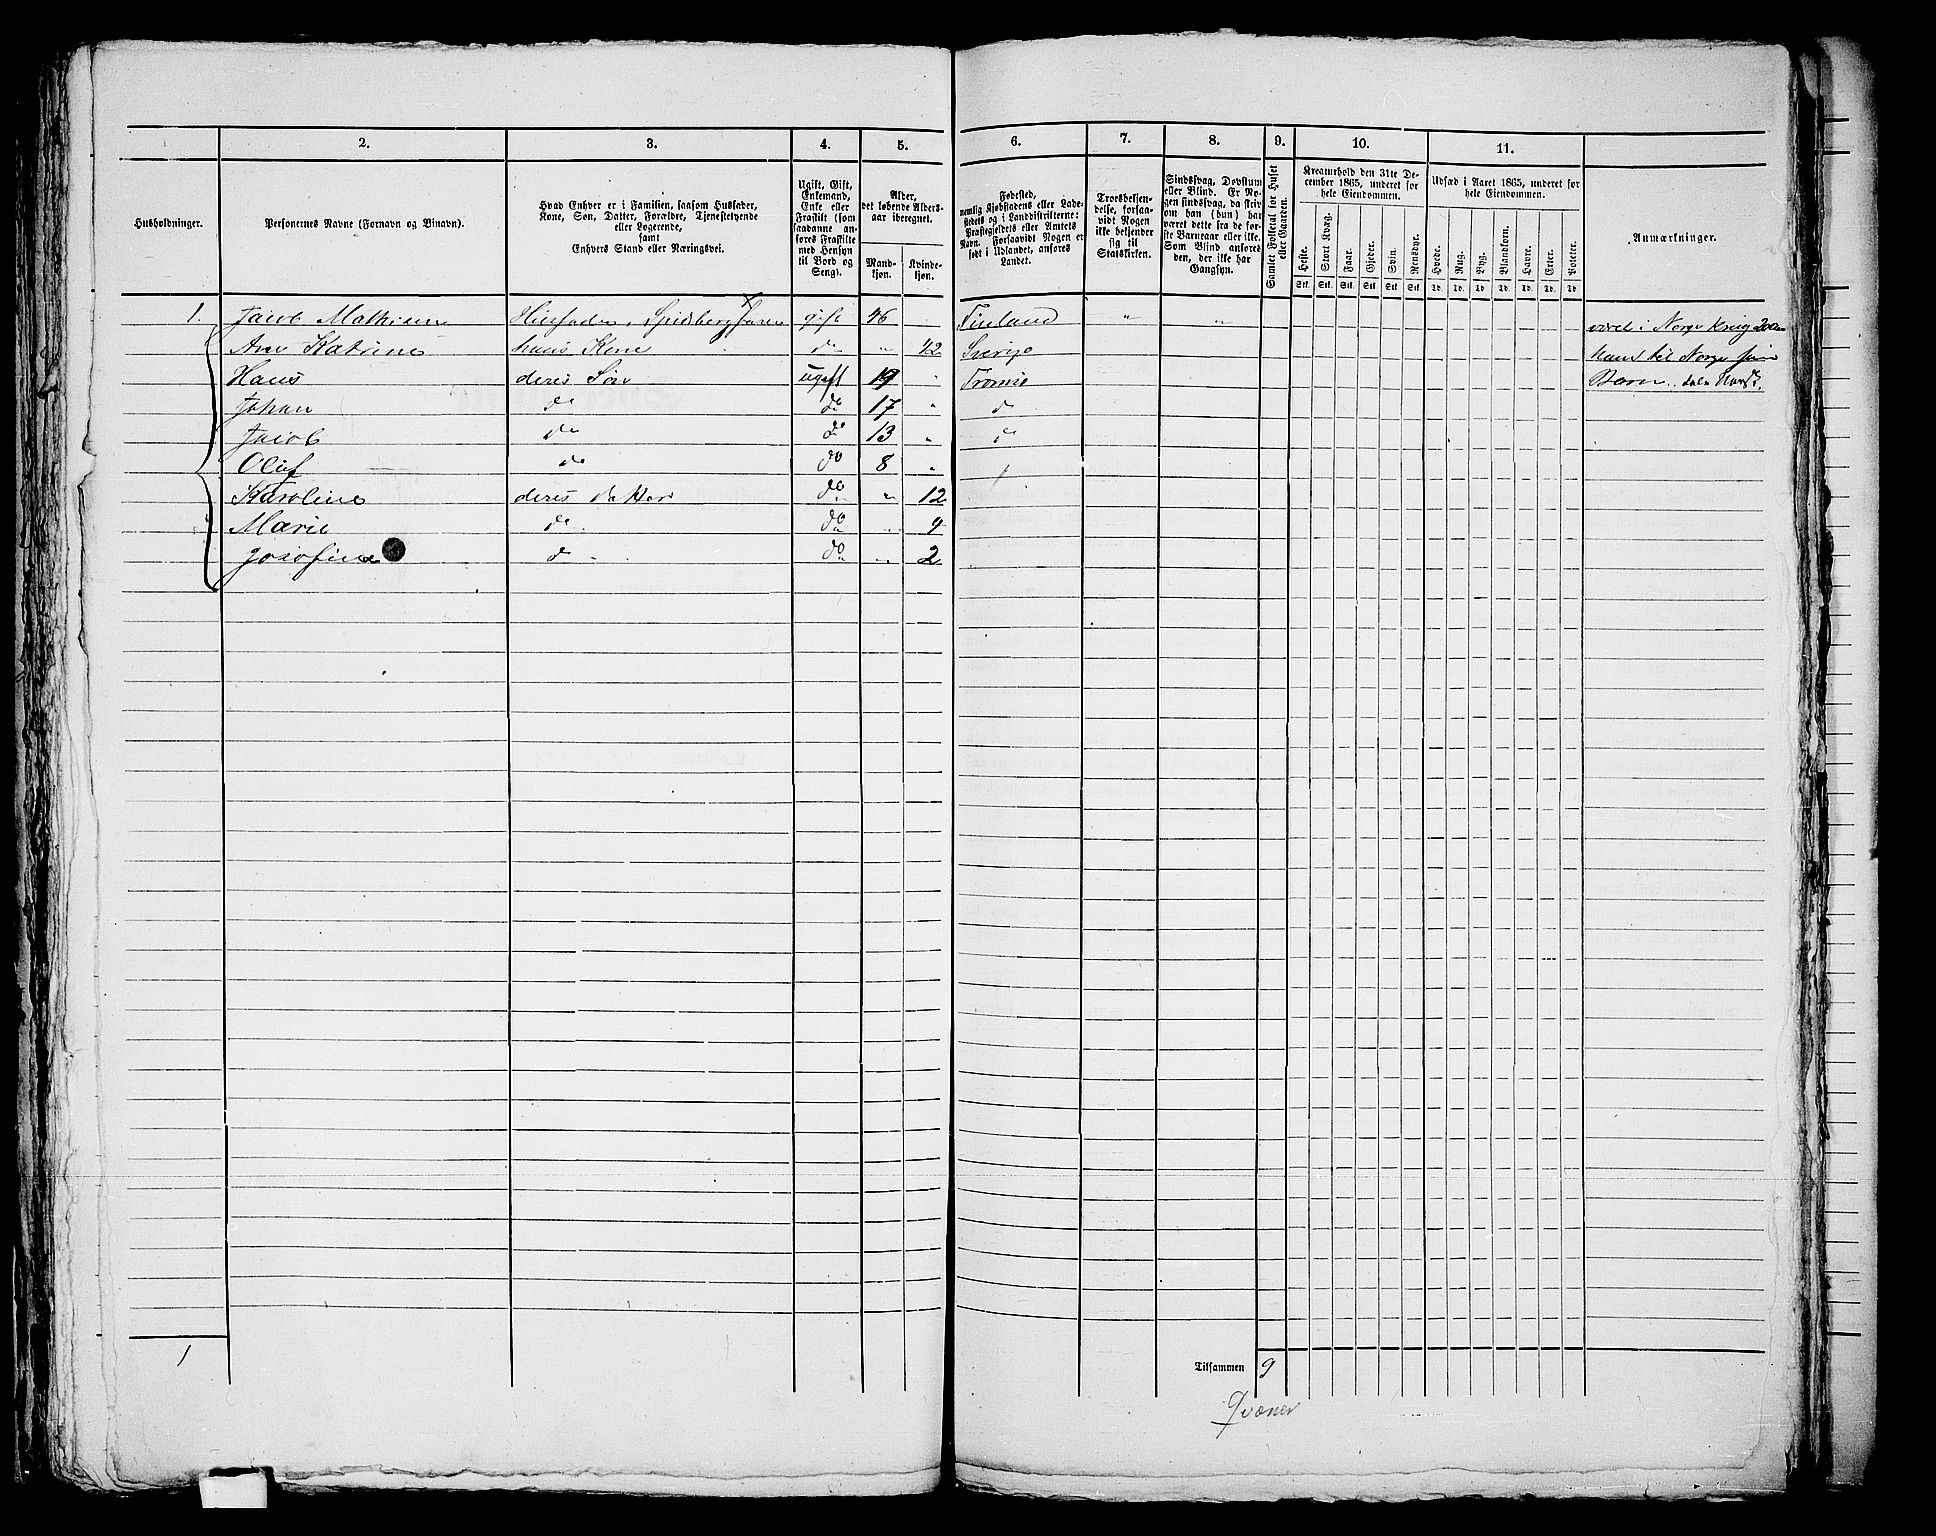 1 2. 3. 4. 5. 6. 7. 8. 9. 10. 11.
Husholdninger.
Personernes Navne (Fornavn og Binavn).
Hvad Enhver er i Familien, saasom Husfader,
Kone, Søn, Datter, Forældre, Tjenestetyende
eller Logerende,
samt
Enhvers Stand eller Næringsvei.
Ugift, Gift,
Enkemand,
Enke eller
Fraskilt (som
saadanne an-
føres Fraskilte
med Hensyn
til Bord og
Seng).
Alder,
det løbende Alders-
aar iberegnet.
Mand-
kjøn.
Kvinde-
kjøn.
Fødested,
nemlig Kjøbstadens eller Lade-
stedets og i Landdistrikterne:
Præstegjeldets eller Amtets
Navn. Forsaavidt Nogen er
født i Udlandet, anføres
Landet.
Troesbekjen-
delse, forsaa-
vidt Nogen
ikke bekjender
sig til
Statskirken.
Sindssvag, Døvstum
eller Blind. Er No-
gen sindssvag, da skriv
om han (hun) har
været dette fra de før-
ste Barneaar eller ikke.
Som Blind anføres
den, der ikke har
Gangsyn.
Samlet Folketal for Huset
eller Gaarden.
Kreaturhold den 31te De-
cember 1865, underet for
hele Eiendommen.
Heste.
Stort Kvæg.
Faar.
Gjeder.
Svin.
Rensdyr.
Stk. Stk. Stk. Stk. Stk. Stk.
Udsæd i Aaret 1865, underet for
hele Eiendommen.
Hvede.
Rug.
Byg.
Blandkorn.
Havre.
Erter.
Poteter.
Td. Td. Td. Td. Td. Td. Td.
Anmærkninger.
1. Jacob Mathisen Husfader, Spidsbergfarer gift 46 Finland " " været i Norge 20
Ane Katrine hans Kone do " 42 Sverige til Norge
Hans deres Søn ugift 19 " Tromsø Barn. tale Norsk.
Johan do do 17 " do
Jacob do do 13 " do
Oluf do do 8 "
Karoline deres datter do " 12
Marie do do " 4
Josefine do do " 2
1
Tilsammen 9
Qvæner